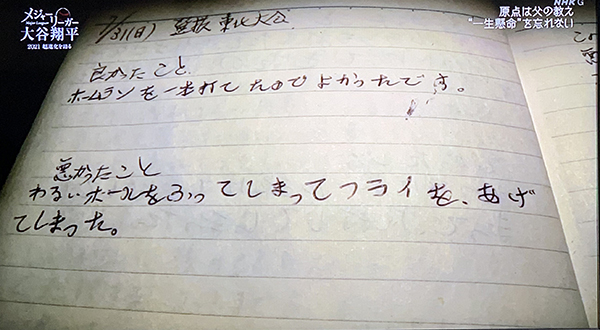 メジャーリーガー
大谷翔平
2021 超進化を語る
NHK G
原点は父の教え
“一生懸命”を忘れない
7/31(日) 東北大会
良かったこと
ホームランを一本打てたのでよかったです。
悪かったこと
わるいボールをふってしまってフライを、あげ
てしまった。